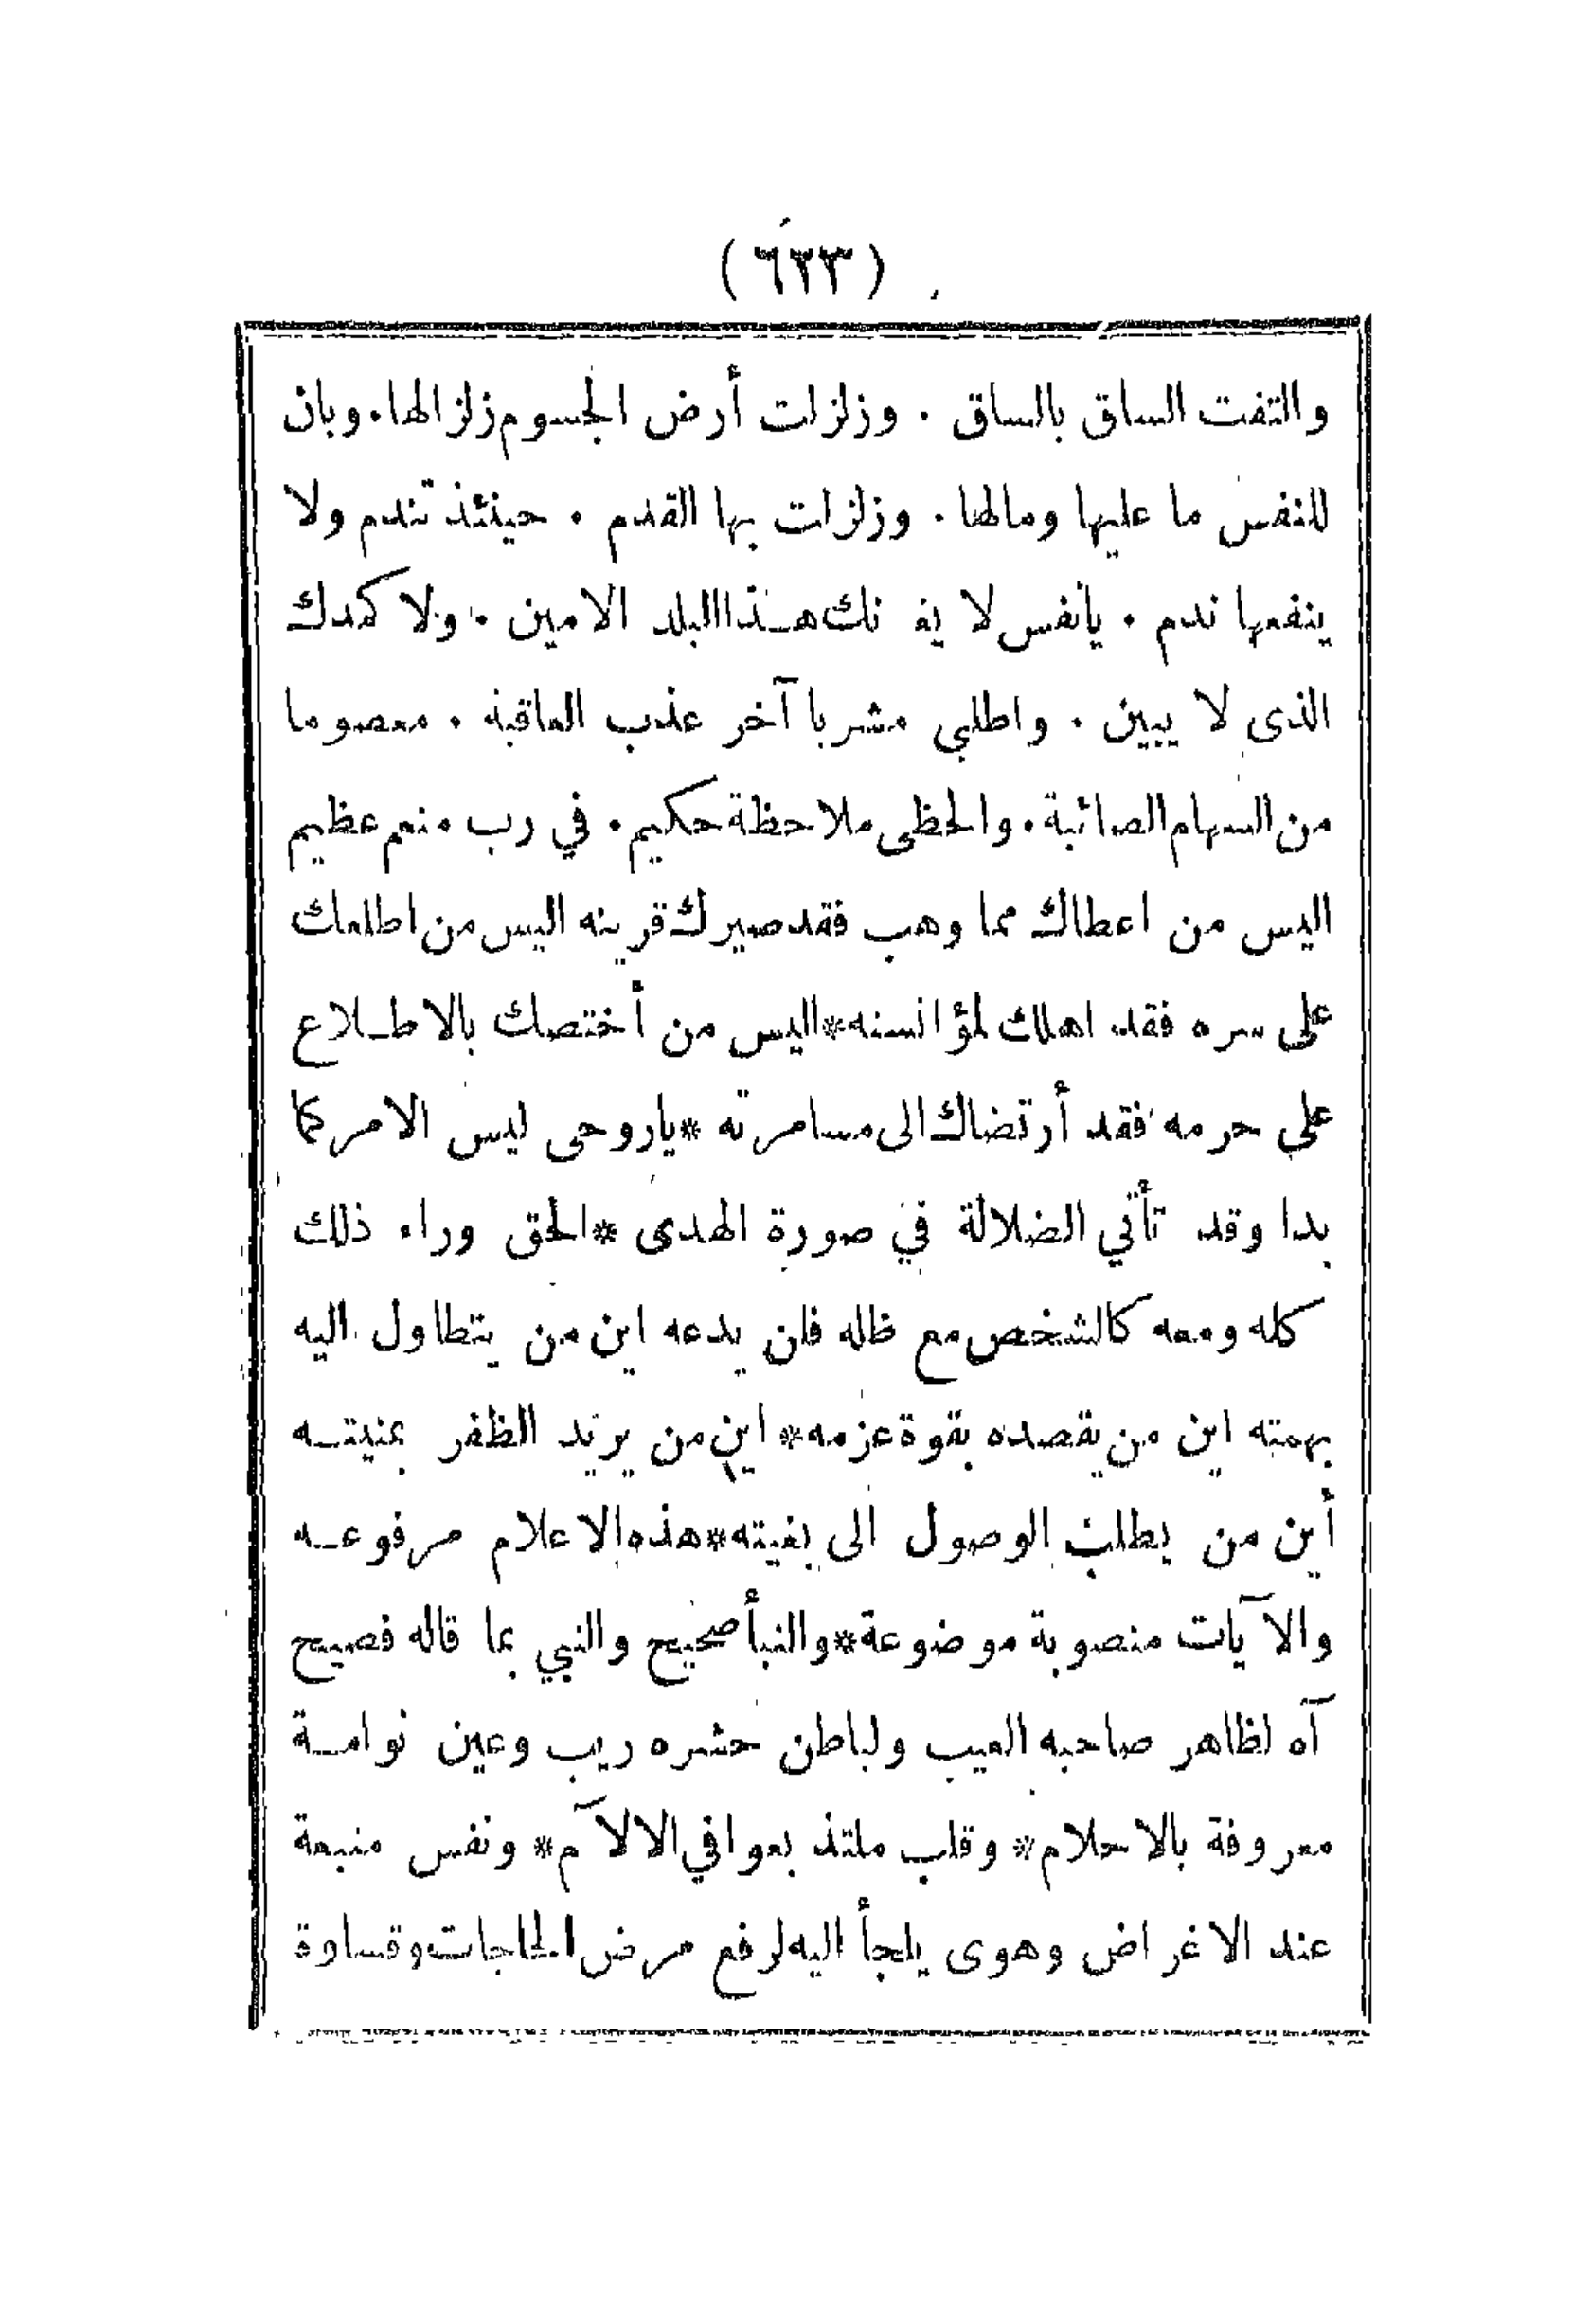 (٦٢٣)
والتفت الساق بالساق . وزلزلت أرض الجسوم زلزالها . وبان
للنفس ما عليها ومالها . وزلزلت بها القدم . حينئذ تندم ولا
ينفعها ندم . يانفس لا هذا البلد الامين . ولا كمدك
الذى لا يبين . واطلبي مشربا آخر عذب العاقبة . معصوما
من السهام الصائبة . والحظى ملاحظة حكيم . في رب منعم عظيم
اليس من اعطاك مما وهب فقد صيرك قرينه اليس من اطلعك
على سره فقد اهلك لمؤانسته * اليس من أختصك بالاطـلاع
على حرمه فقد أرتضاك الى مسامرته * ياروحى ليس الامر كما
بدا وقد تأتي الضلالة في صورة الهدى * الحق وراء ذلك
كله ومعه كالشخص مع ظله فلن يدعه اين من يتطاول اليه
بهمته اين من يقصده بقوة عزمه * اين من يريد الظفر بمنيتـه
أين من يطلب الوصول الى بغيته * هذه الاعلام مرفوعـه
والآيات منصوبة موضوعة * والنبأ صحيح والنبي بما قاله فصيح
آه لظاهر صاحبه العيب ولباطن حشره ريب وعين نوامـة
معروفة بالاحلام * وقلب ملتذ بعوافي الآلام * ونفس منبعة
عند الاغراض وهوى يلجأ اليه لرفع مرض الحاجات وقساوة